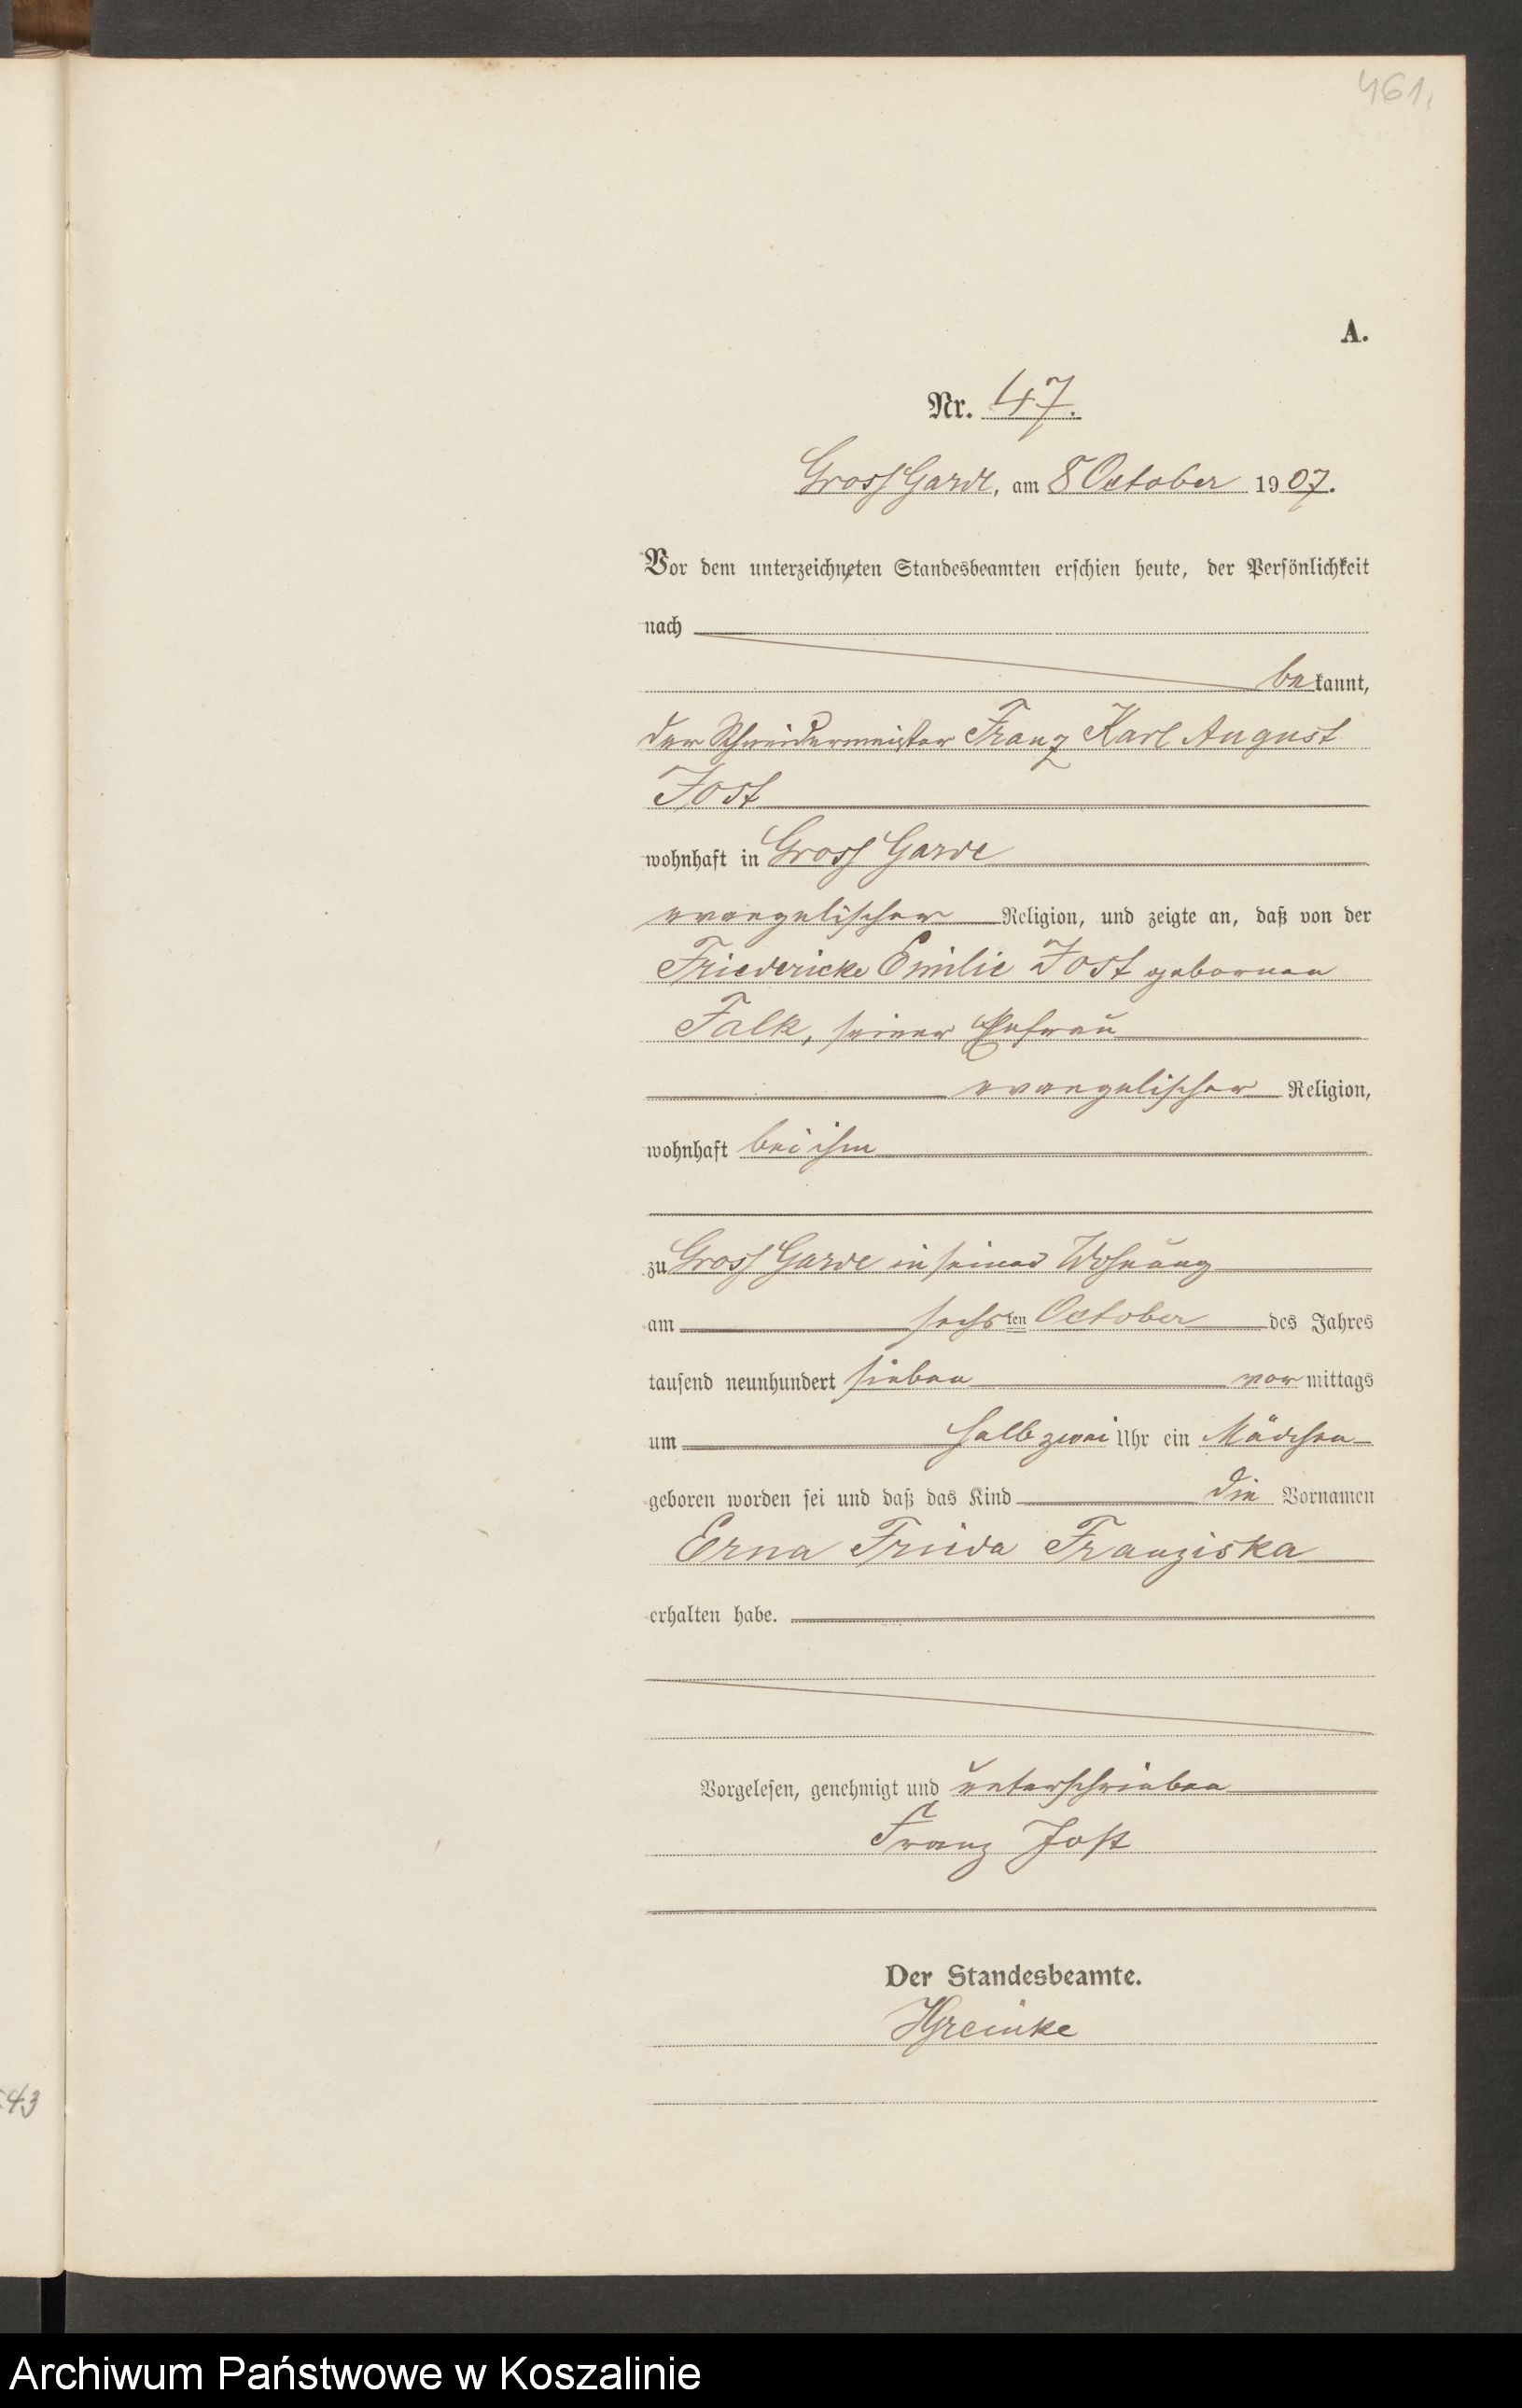 461.
A.
Nr. 47.
Gross Garde, am 8 October 1907.
Vor dem unterzeichneten Standesbeamten erschien heute, der Persönlichkeit
nach
bekannt,
der Schneidermeister Franz Karl August
Jost
wohnhaft in Gross Garde
evangelischer Religion, und zeigte an, daß von der
Friedericke Emilie Jost geborenen
Falk, seiner Ehefrau
evangelischer Religion,
wohnhaft bei ihm
zu Gross Garde in seiner Wohnung
am sechsten October des Jahres
tausend neunhundert sieben vormittags
um halb zwei Uhr ein Mädchen
geboren worden sei und daß das Kind die Vornamen
Erna Frieda Franziska
erhalten habe.
Vorgelesen, genehmigt und unterschrieben
Franz Jost
Der Standesbeamte.
43
Archiwum Państwowe w Koszalinie